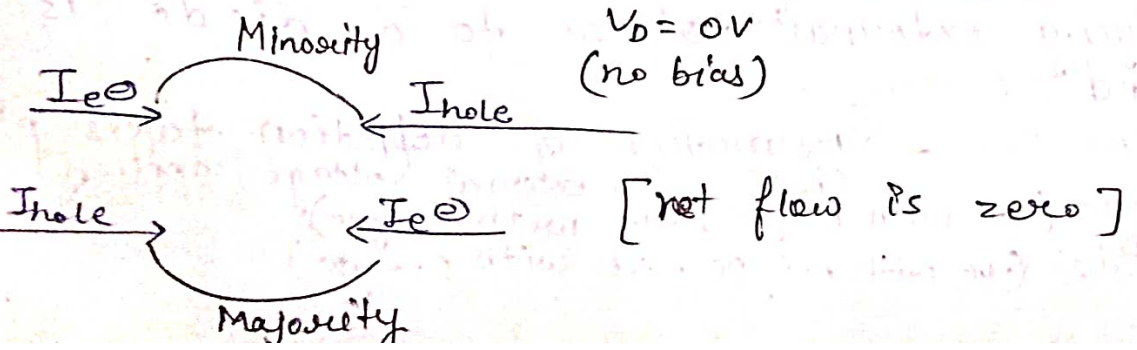 Minority
V_D = 0V
(no bias)
I_e⊖
I_hole
I_hole
I_e⊖
[net flow is zero]
Majority